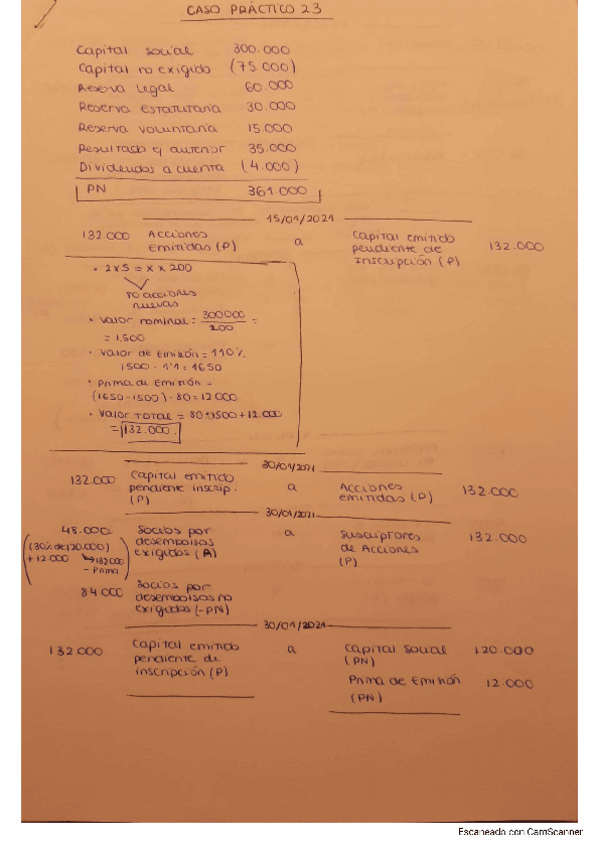 CASO PRÁCTICO 23
Capital social 300.000
Capital no exigido (75.000)
Reserva Legal 60.000
Reserva Estatutaria 30.000
Reserva Voluntaria 15.000
Resultado ej anterior 35.000
Dividendos a cuenta (4.000)
PN 361.000
15/01/2021
132.000 Acciones Emitidas (P) a Capital emitido pendiente de Inscripción (P) 132.000
• 2 x 5 = x x 200
nº acciones
nuevas
• Valor nominal = 300000/200 =
= 1.500
• Valor de Emisión = 110%
1500 · 1'1 = 1650
• Prima de Emisión =
(1650-1500) · 80 = 12000
• Valor TOTAL = 80·1500 + 12.000
= 132.000
30/01/2021
132.000 Capital emitido pendiente inscrip. (P) a Acciones emitidas (P) 132.000
30/01/2021
48.000 Socios por desembolsos exigidos (A) a Suscriptores de Acciones (P) 132.000
(30% de 120.000)
+ 12.000 → 132000
- Prima
84.000 Socios por desembolsos no exigidos (-PN)
30/01/2021
132.000 Capital emitido pendiente de inscripción (P) a Capital Social (PN) 120.000
Prima de Emisión (PN) 12.000
Escaneado con CamScanner